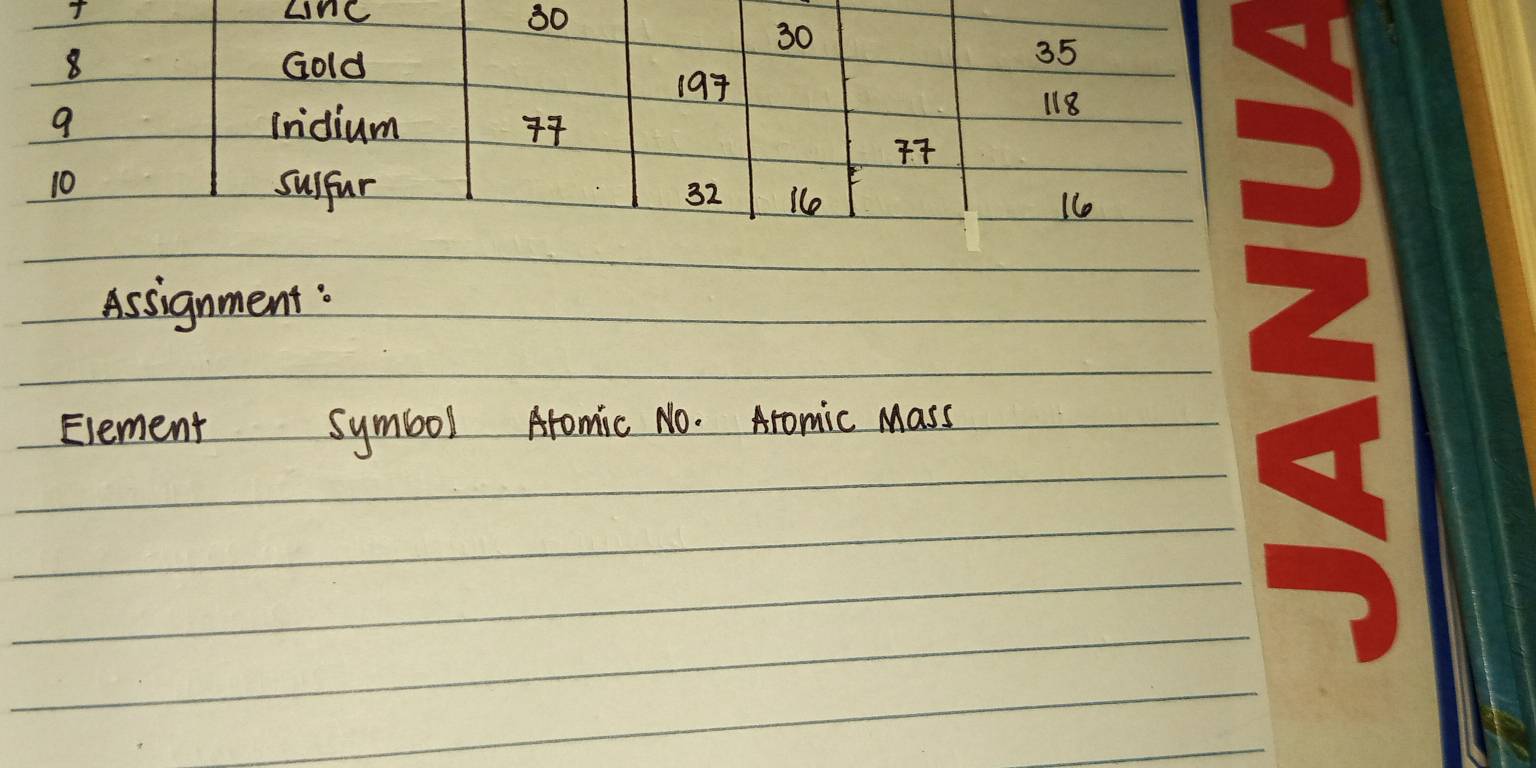 7 Zinc 30 30 35
8 Gold 197 118
9 Iridium 77 77
10 Sulfur 32 16 16
Assignment:
Element Symbol Atomic No. Atomic Mass
JANUA